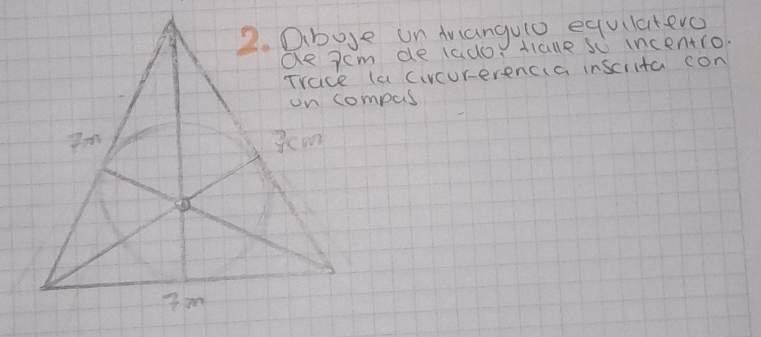 2. Dibuje un triangulo equilatero
de 7cm de lado y halle su incentro.
Trace la circunferencia inscrita con
un compas
7m
7cm
7m